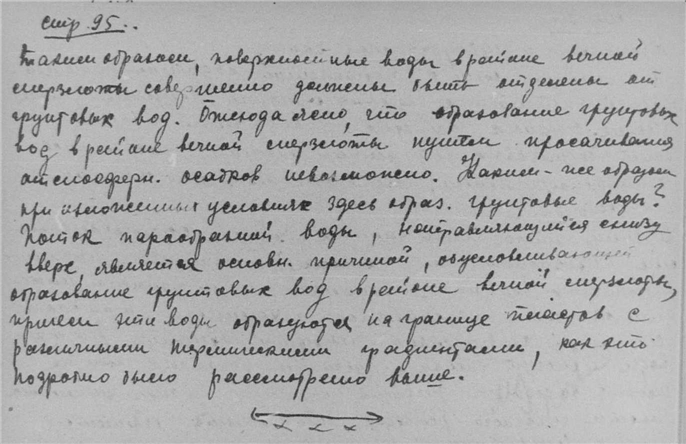 стр. 95..
Таким образом, поверхностные воды в районе вечной
мерзлоты совершенно должны быть отделены от
грунтовых вод. Отсюда ясно, что образование грунтовых
вод в районе вечной мерзлоты путем просачивания
атмосферн. осадков невозможно. Каким-же образом
при изложенных условиях здесь образ. грунтовые воды?
Поток парообразной воды, направляющийся снизу
вверх, является основн. причиной, обусловливающей
образование грунтовых вод в районе вечной мерзлоты,
причем эти воды образуются на границе пластов с
различными термическими градиентами, как это
подробно было рассмотрено выше.
x x x